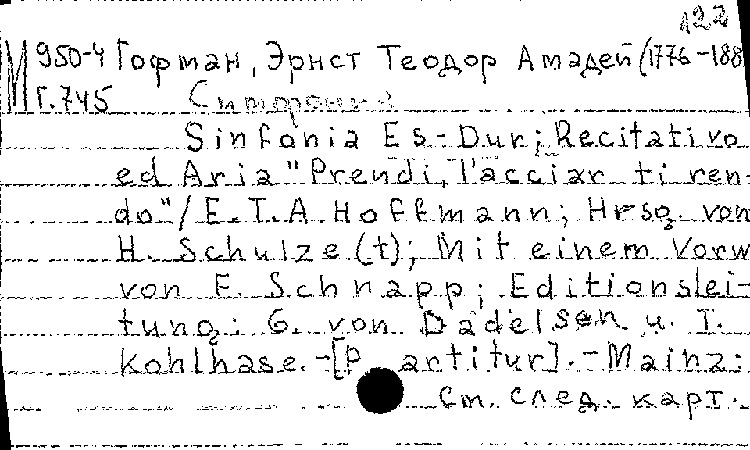 122
M 950-4 Гофман, Эрнст Теодор Амадей (1776-188
Г.745 Симфония
Sinfonia Es-Dur; Recitativo
ed Aria "Prendi, l'acciar ti ren-
do"/E.T.A. Hoffmann; Hrsg. von
H. Schulze (t); Mit einem Vorw
von F. Schnapp; Editionslei-
tung: G. von Dadelsen u. T.
Kohlhase.-[Partitur].-Mainz:
См. след. карт.